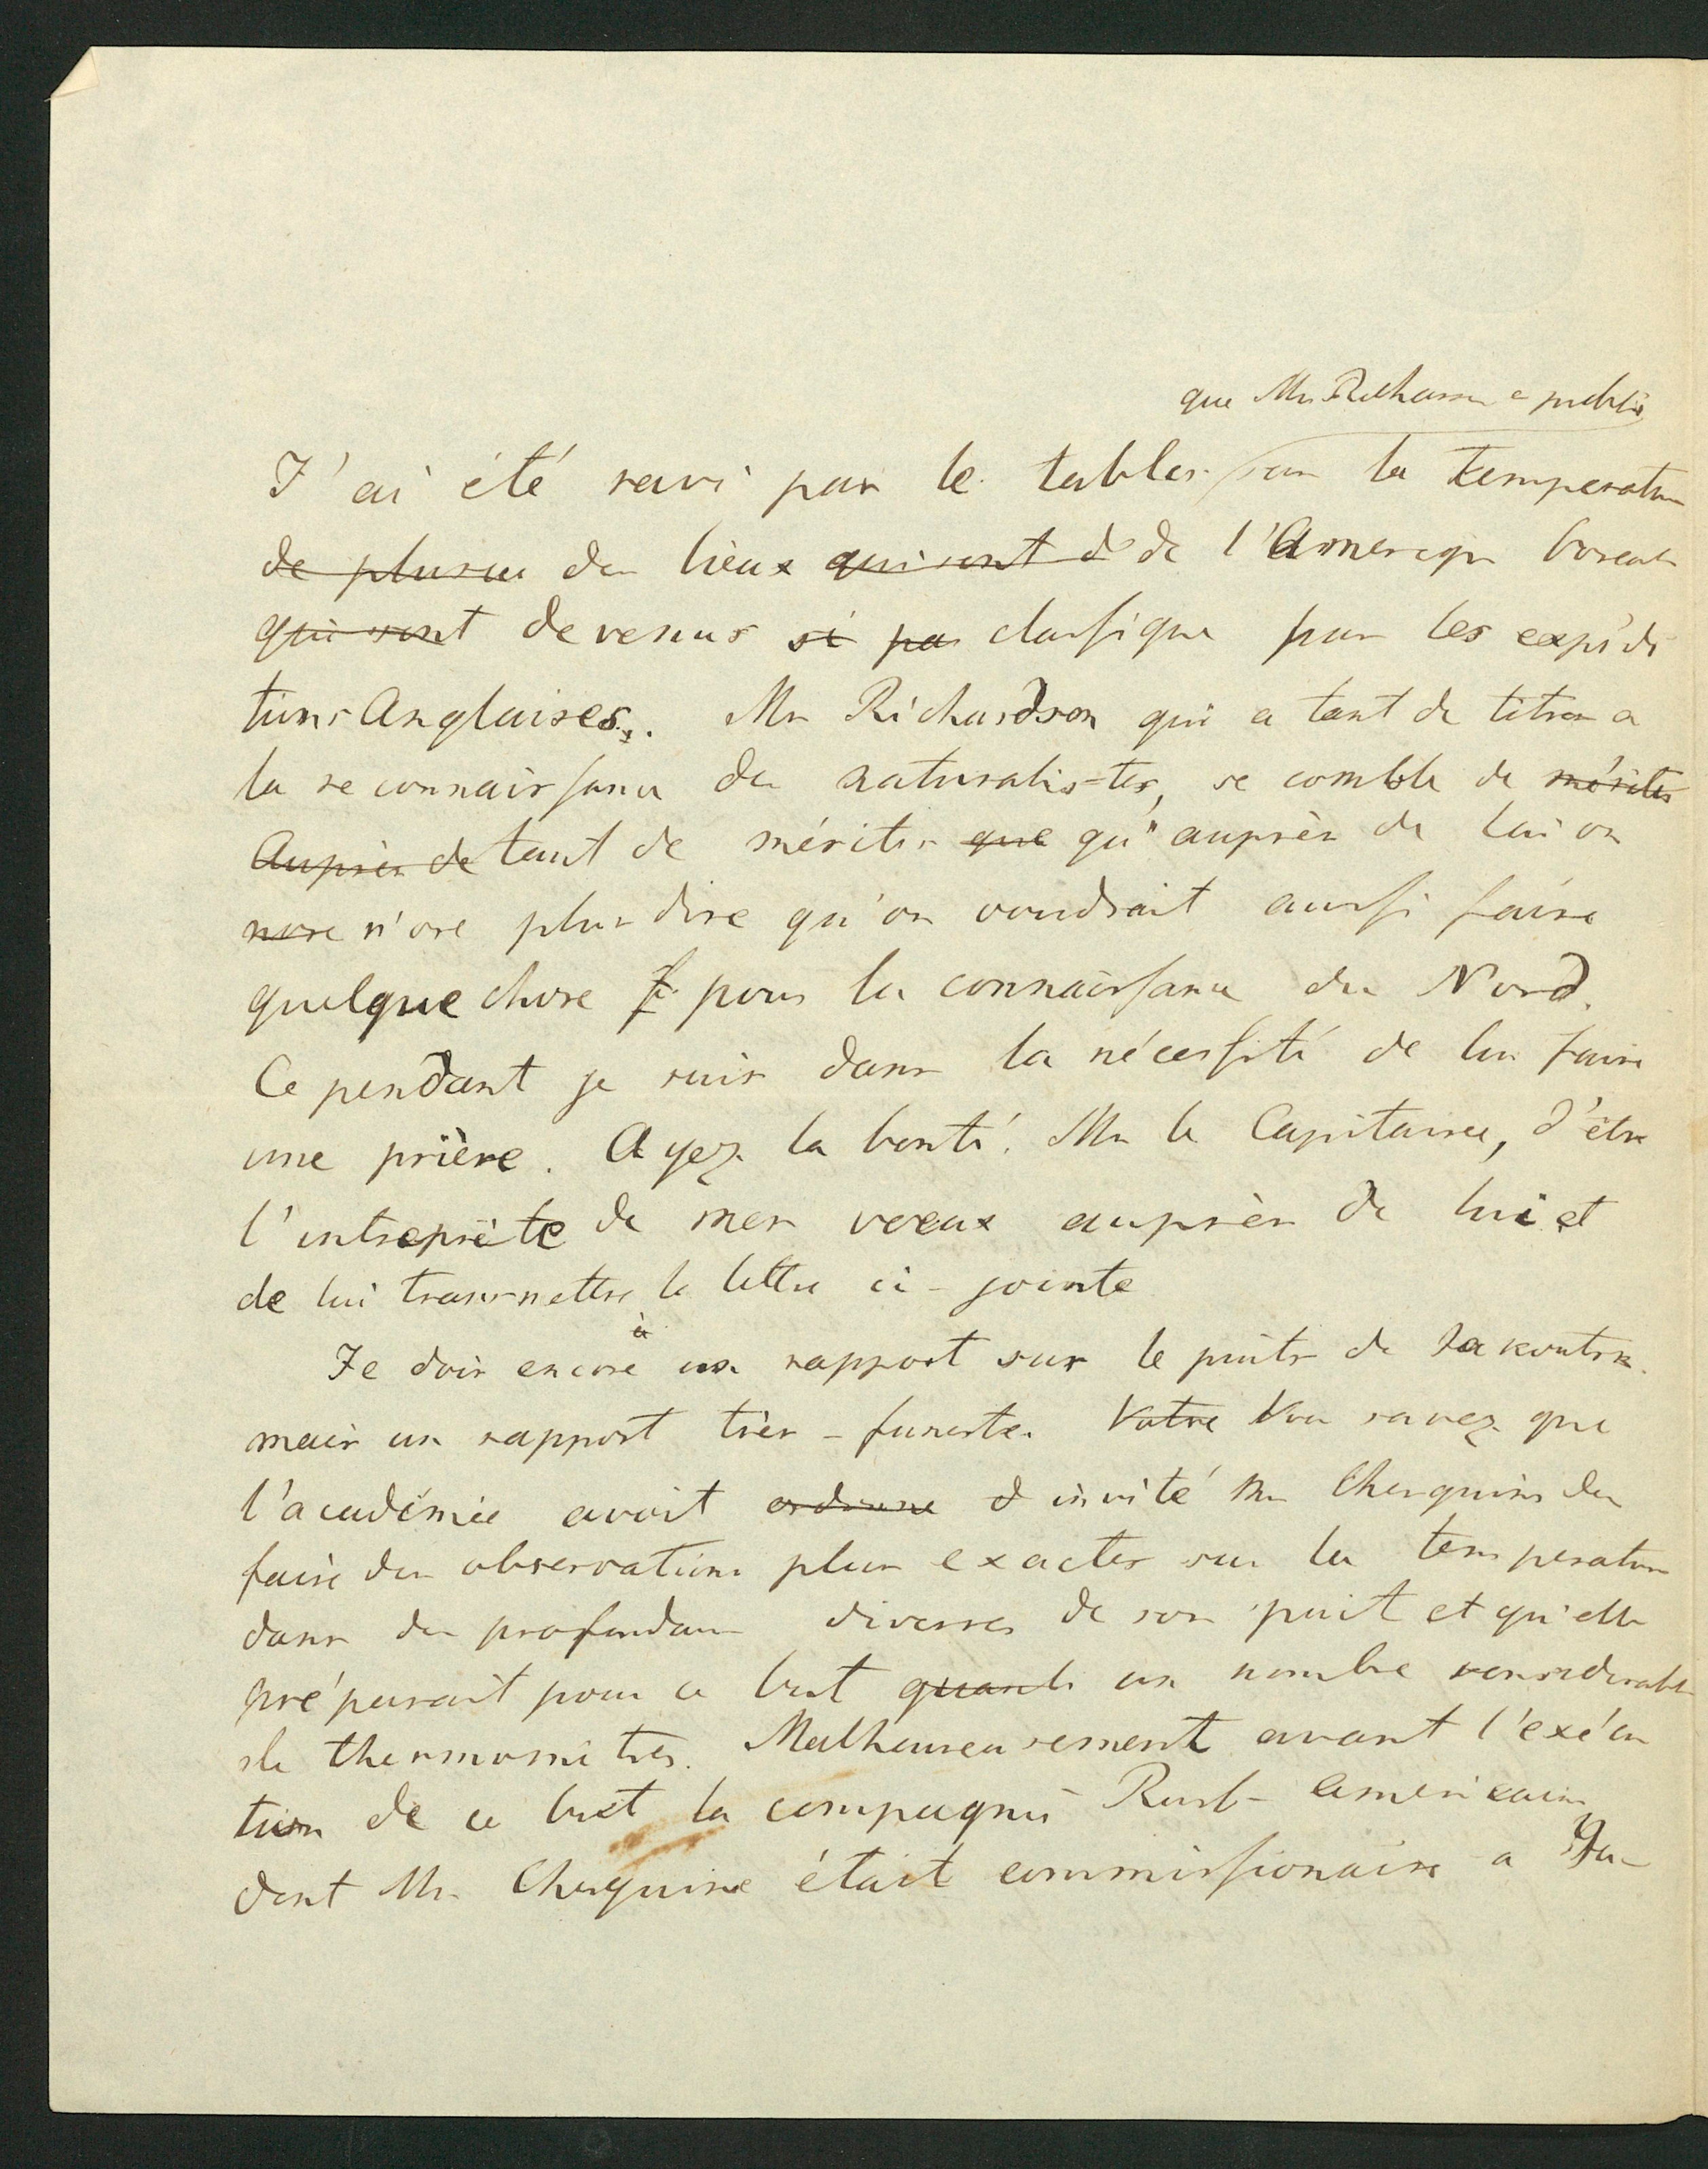 que Mr Richardson a publié
J'ai été ravi par le tables sur la temperature
de plusieu des lieux qui sont d de l'Amerique boreale
qui sont devenus si pa classique par les expédi
tions Anglaises. Mr Richardson qui a tant de titres a
la reconnaissance des naturalis-tes, se comble de mérites
Auprès de tant de mérites que qu'auprès de lui on
nose n'ose plus dire qu'on voudrait aussi faire
quelque chose f pour la connaissance du Nord.
Cependant je suis dans la nécessité de lui faire
une prière. Ayez la bonté. Mr le Capitaine, d'être
l'intreprète de mes voeux auprès de lui et
de lui transmettre la lettre ci-jointe
à
Je dois encore un rapport sur le puits de Jakoutsk.
mais un rapport très-funeste. Votre Vou savez que
l'académie avoit ordonne d invité Mr Cherguine de
faire des observations plus exactes sur la temperature
dans des profondeurs diverses de son puit et qu'elle
préparait pour ce but un nombre considerable
de thermometres. Malheureusement avant l'exécu
tion de ce but la compagnie Russ-americaine
dont Mr Cherguine était commissionaire a Ja-